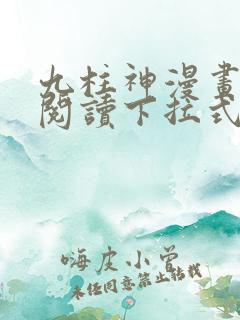 九柱神漫畫
閱讀下拉式
嗨皮小曾
未任同意禁止轉載